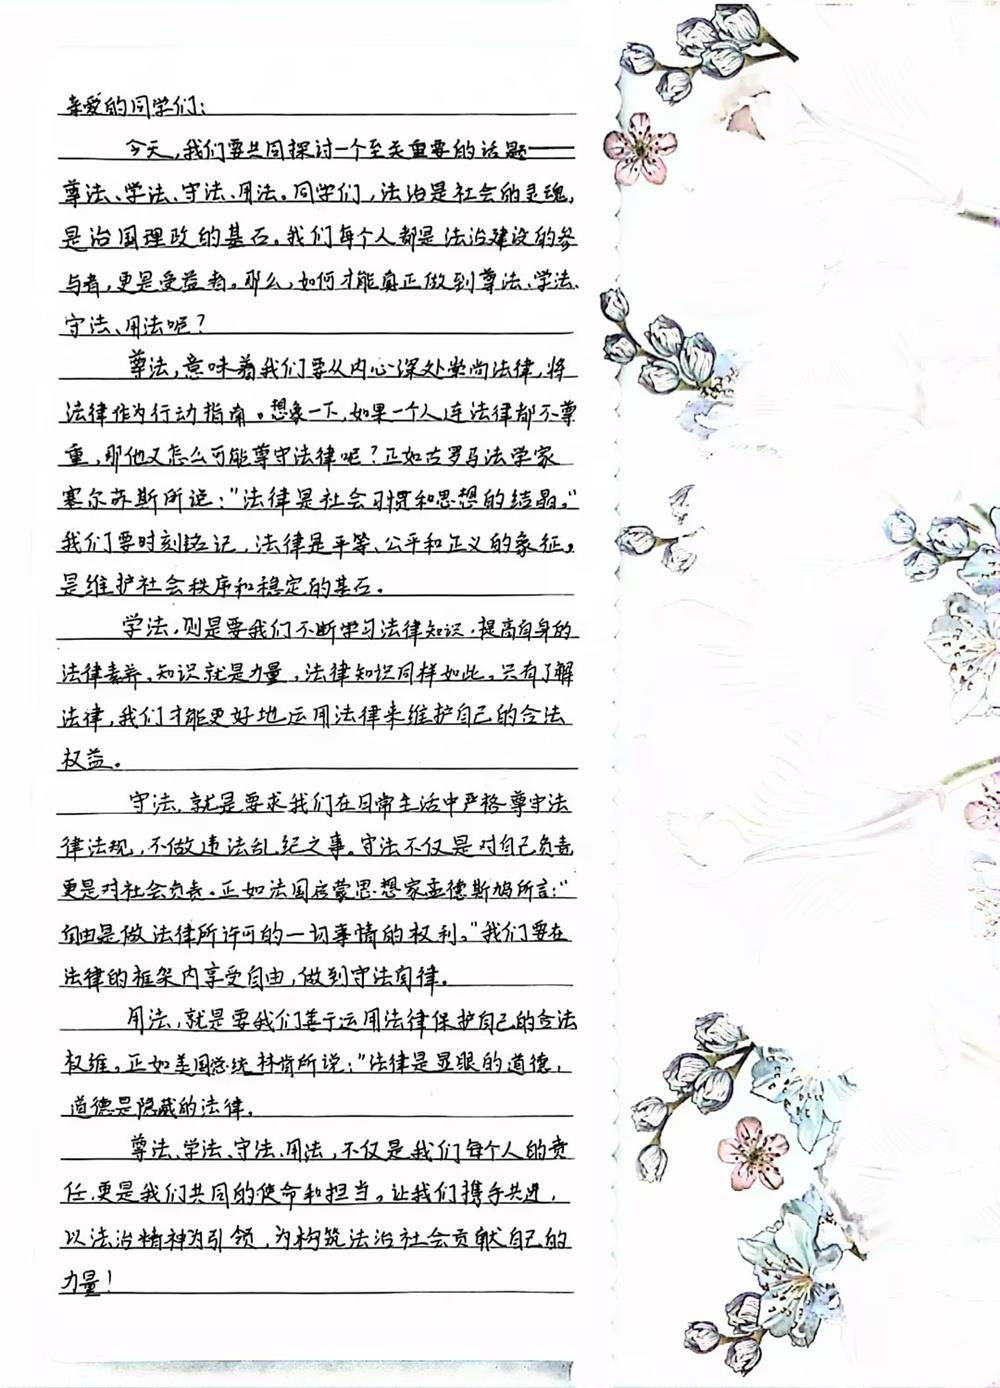 亲爱的同学们:
今天,我们要共同探讨一个至关重要的话题——
尊法、学法、守法、用法。同学们,法治是社会的灵魂,
是治国理政的基石。我们每个人都是法治建设的参
与者,更是受益者。那么,如何才能真正做到尊法、学法、
守法、用法呢?
尊法,意味着我们要从内心深处崇尚法律,将
法律作为行动指南。想象一下,如果一个人连法律都不尊
重,那他又怎么可能尊守法律呢?正如古罗马法学家
塞尔苏斯所说:"法律是社会习惯和思想的结晶。"
我们要时刻铭记,法律是平等、公平和正义的象征,
是维护社会秩序和稳定的基石。
学法,则是要我们不断学习法律知识,提高自身的
法律素养。知识就是力量,法律知识同样如此。只有了解
法律,我们才能更好地运用法律来维护自己的合法
权益。
守法,就是要求我们在日常生活中严格尊守法
律法规,不做违法乱纪之事。守法不仅是对自己负责,
更是对社会负责。正如法国启蒙思想家孟德斯鸠所言:"
自由是做法律所许可的一切事情的权利。"我们要在
法律的框架内享受自由,做到守法自律。
用法,就是要我们善于运用法律保护自己的合法
权维。正如美国总统林肯所说:"法律是显眼的道德,
道德是隐藏的法律。
尊法、学法、守法、用法,不仅是我们每个人的责
任,更是我们共同的使命和担当。让我们携手共进,
以法治精神为引领,为构筑法治社会贡献自己的
力量!